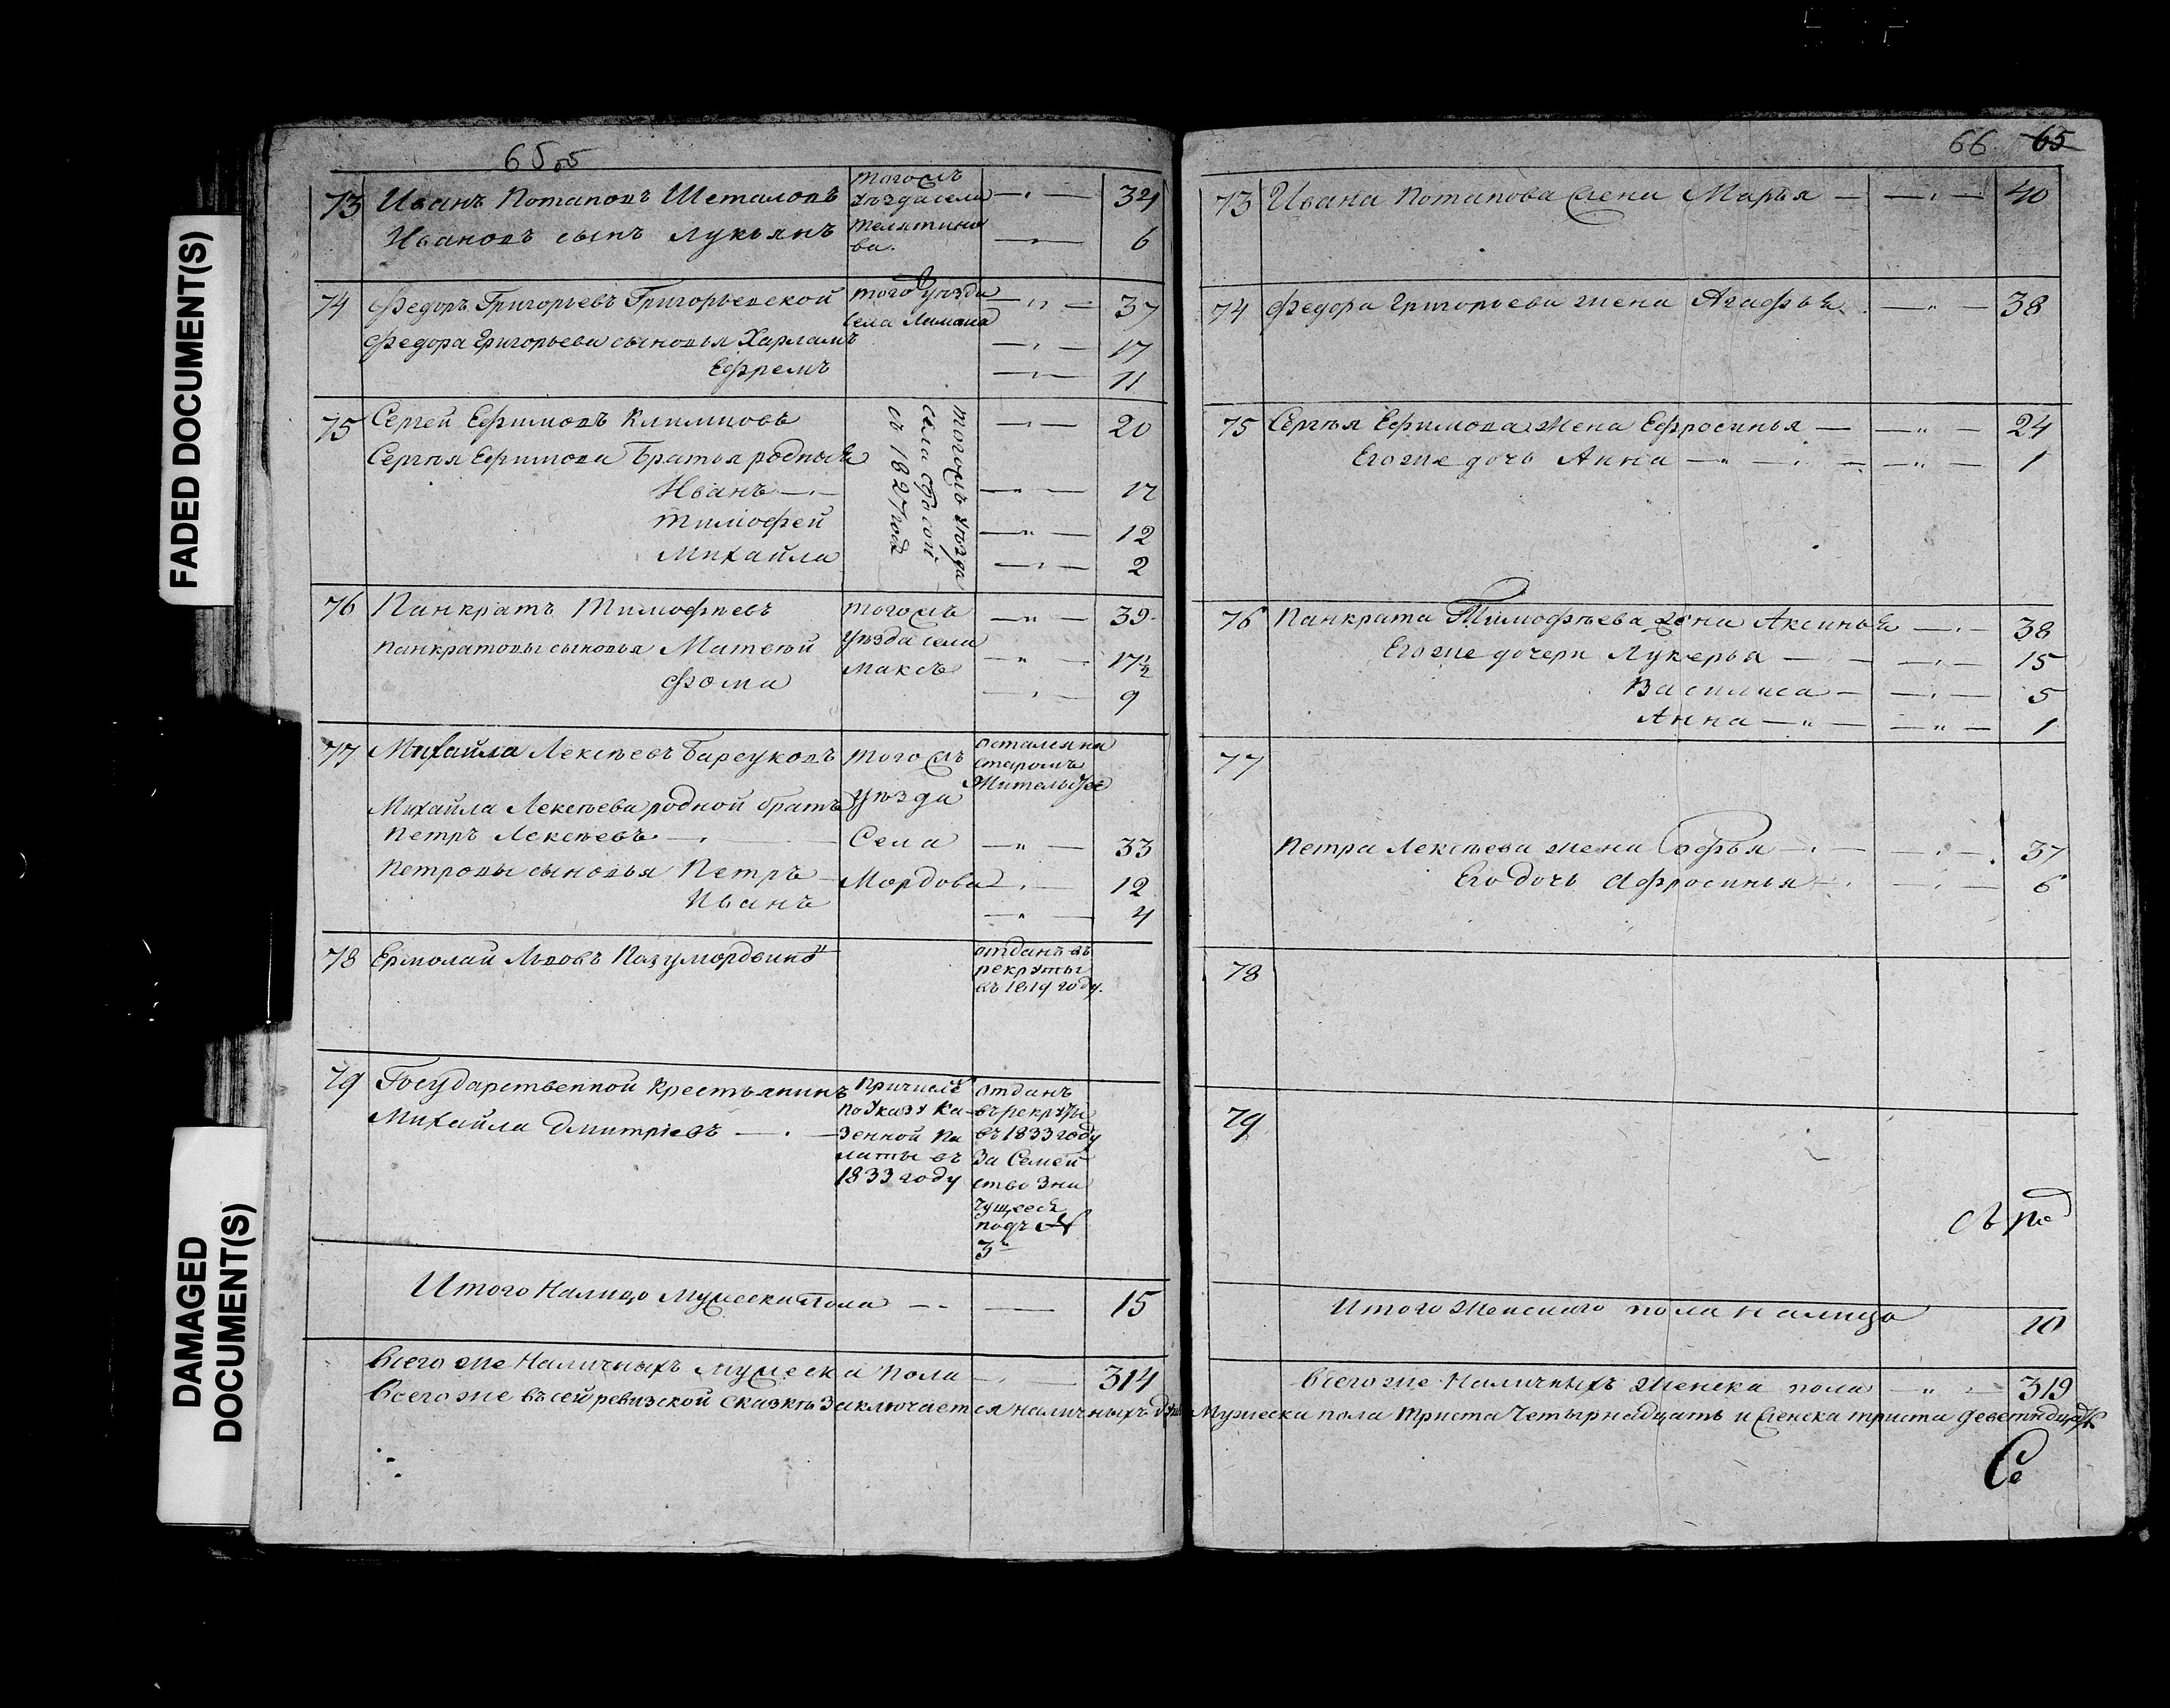 FADED DOCUMENT(S)
DAMAGED DOCUMENT(S)
65об
73 Иванъ Потаповъ Шеталовъ тогожъ уъзда села Телятинова. 34
Ивановъ сынъ Лукьянъ 6
74 Федоръ Григорьевъ Григорьевской того уѣзда села Лимана 37
Федора Григорьева сыновья Харламъ 17
Ефремъ 11
75 Сергей Ефимовъ Климновъ тогожъ уѣзда села съ 1827 года 20
Сергѣя Ефимова Братья родныя
Иванъ 17
Тимофей 12
Михайла 2
76 Панкратъ Тимофѣевъ тогожъ уѣзда села Максъ 39
Панкратовы сыновья Матвѣй 17½
Фома 9
77 Михайла Лексѣевъ Барсуковъ тогожъ осталсяна старомъ жительстве
Михайла Лексѣева родной братъ уѣзда
Петръ Лексѣевъ Села 33
Петровы сыновья Петръ Мордова 12
Иванъ 4
78 Ермолай Львовъ отданъ въ рекруты въ 1819 году.
79 Государственной Крестьянинъ Причисле отданъ
Михайла Дмитріевъ по Указу Ка- въ рекруты
зенной Па въ 1833 году
латы въ За Семей
1833 году ство Зна
чущееся
подъ №
3м
Итого Налицо Мужеска Пола 15
Всего же Наличныхъ мужеска Пола 314
Всего же въ сей ревизской сказкѣ Заключается наличныхъ душъ
66 65
73 Ивана Потапова жена Марья 40
74 Федора Григорьева жена Агафья 38
75 Сергѣя Ефимова жена Ефросинья 24
Его же дочь Анна 1
76 Панкрата Тимофѣева жена Аксинья 38
Его же дочери Лукерья 15
Василиса 5
Анна 1
77
Петра Лексѣева жена Софья 37
Его дочь Афросинья 6
78
79
Итого Женскаго пола налицо 10
Всего же Наличныхъ женска пола 319
Мужеска пола триста Четырнадцать и женска триста деветндцать
Се